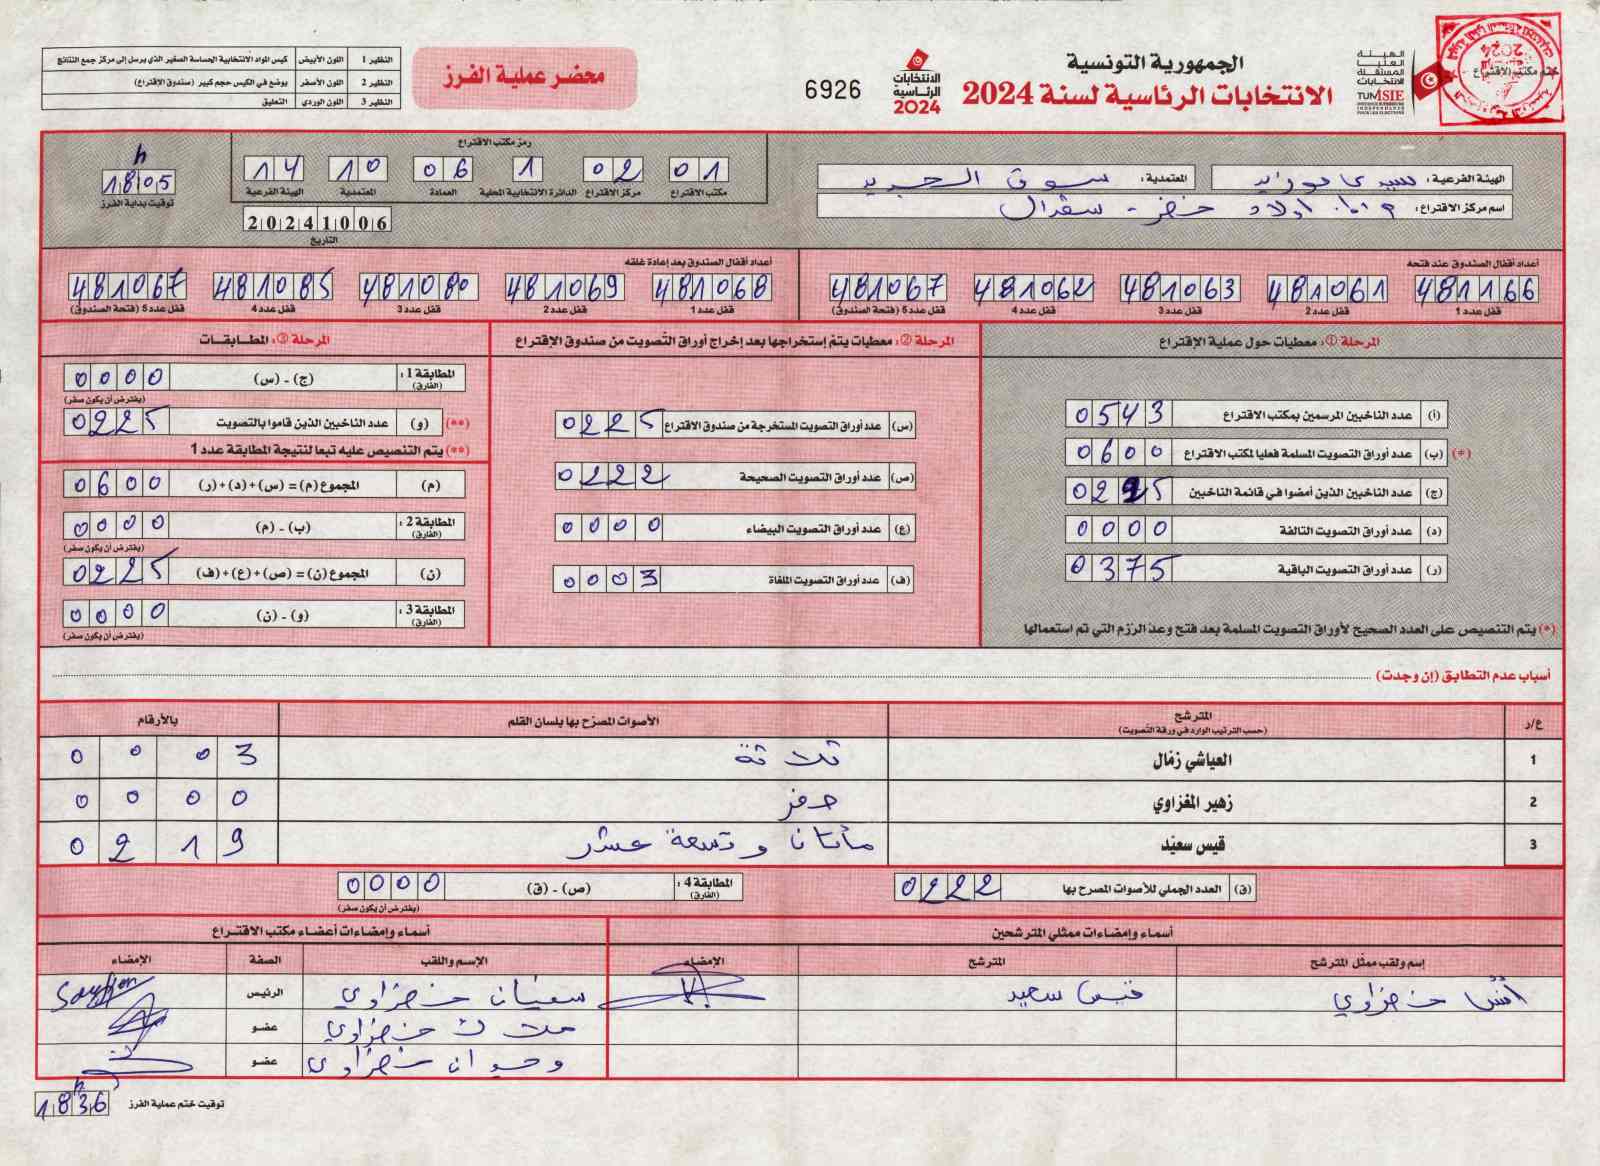 النظير 1 اللون الأبيض كيس المواد الانتخابية الحساسة الصغير الذي يرسل إلى مركز جمع النتائج
النظير 2 اللون الأصفر يوضع في الكيس حجم كبير (صندوق الاقتراع)
النظير 3 اللون الوردي التعليق
محضر عملية الفرز
6926
الانتخابات
الرئاسية
2024
الجمهورية التونسية
الانتخابات الرئاسية لسنة 2024
الهيئة
العليا
المستقلة
للانتخابات
TUNISIE
ختم مكتب الاقتراع
الهيئة الفرعية: سيدي بوزيد
المعتمدية: سوق الجديد
اسم مركز الاقتراع: اولاد خضر -
رمز مكتب الاقتراع
01 02 1 06 10 14
مكتب الاقتراع مركز الاقتراع الدائرة الانتخابية المحلية العمادة المعتمدية الهيئة الفرعية
20241006
التاريخ
h
1805
توقيت بداية الفرز
أعداد أقفال الصندوق عند فتحه
481166 481061 481063 481062 481067
قفل عدد 1 قفل عدد 2 قفل عدد 3 قفل عدد 4 قفل عدد 5 (فتحة الصندوق)
أعداد أقفال الصندوق بعد إعادة غلقه
481068 481069 481080 481085 481067
قفل عدد 1 قفل عدد 2 قفل عدد 3 قفل عدد 4 قفل عدد 5 (فتحة الصندوق)
المرحلة ①: معطيات حول عملية الإقتراع
(أ) عدد الناخبين المرسمين بمكتب الاقتراع 0543
(*) (ب) عدد أوراق التصويت المسلمة فعليا لمكتب الاقتراع 0600
(ج) عدد الناخبين الذين أمضوا في قائمة الناخبين 0225
(د) عدد أوراق التصويت التالفة 0000
(ر) عدد أوراق التصويت الباقية 0375
(*) يتم التنصيص على العدد الصحيح لأوراق التصويت المسلمة بعد فتح وعد الرزم التي تم استعمالها
المرحلة ②: معطيات يتم إستخراجها بعد إخراج أوراق التصويت من صندوق الإقتراع
(س) عدد أوراق التصويت المستخرجة من صندوق الاقتراع 0225
(ص) عدد أوراق التصويت الصحيحة 0222
(ع) عدد أوراق التصويت البيضاء 0000
(ف) عدد أوراق التصويت الملغاة 0003
المرحلة ③: المطابقات
المطابقة 1: (الفارق) (ج) - (س) 0000
(يفترض أن يكون صفر)
(**) (و) عدد الناخبين الذين قاموا بالتصويت 0225
(**) يتم التنصيص عليه تبعا لنتيجة المطابقة عدد 1
(م) المجموع (م) = (س)+(د)+(ر) 0600
المطابقة 2: (الفارق) (ب) - (م) 0000
(يفترض أن يكون صفر)
(ن) المجموع (ن) = (ص)+(ع)+(ف) 0225
المطابقة 3: (الفارق) (و) - (ن) 0000
(يفترض أن يكون صفر)
أسباب عدم التطابق (إن وجدت)
ع/ر المترشح (حسب الترتيب الوارد في ورقة التصويت) الأصوات المصرّح بها بلسان القلم بالأرقام
1 العياشي زمّال ثلاثة 0003
2 زهير المغزاوي صفر 0000
3 قيس سعيّد مأتان وتسعة عشر 0219
(ق) العدد الجملي للأصوات المصرح بها 0222
المطابقة 4: (الفارق) (ص) - (ق) 0000
(يفترض أن يكون صفر)
أسماء وإمضاءات ممثلي المترشحين
إسم ولقب ممثّل المترشح المترشح الإمضاء
أنس خضراوي قيس سعيد
أسماء وإمضاءات أعضاء مكتب الاقتراع
الإسم واللقب الصفة الإمضاء
سفيان خضراوي الرئيس
ملاك خضراوي عضو
خضراوي عضو
h
1836
توقيت ختم عملية الفرز